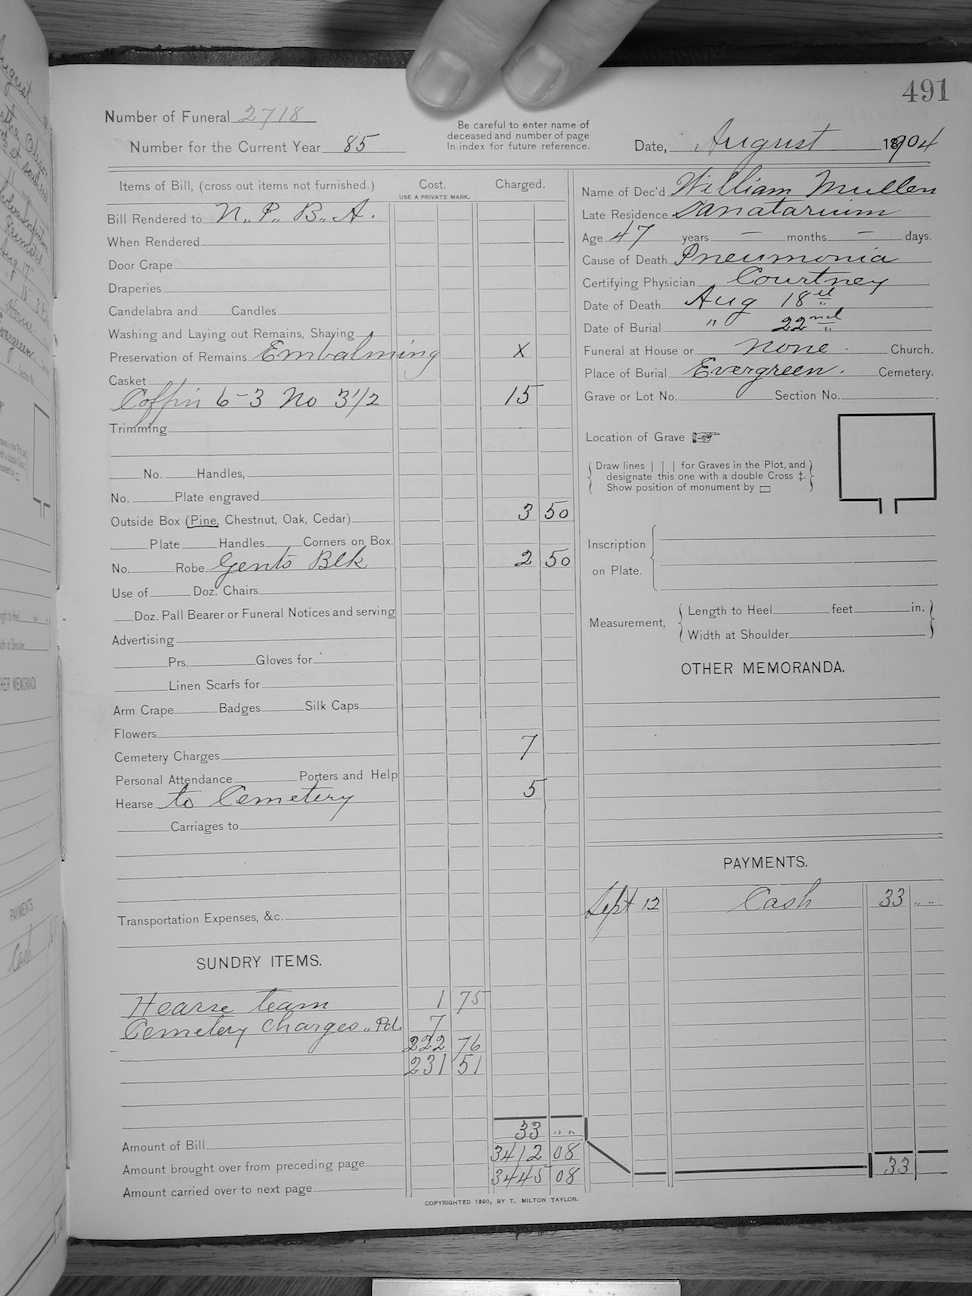 491
Number of Funeral 2718
Number for the Current Year 85
Be careful to enter name of
deceased and number of page
In index for future reference.
Date, August 1904
Items of Bill, (cross out items not furnished.) Cost. Charged.
USE A PRIVATE MARK.
Bill Rendered to N.. P.. B.. A.
When Rendered
Door Crape
Draperies
Candelabra and Candles
Washing and Laying out Remains, Shaving
Preservation of Remains Embalming X
Casket
Coffin 6-3 No 3 1/2 15
Trimming
No. Handles,
No. Plate engraved
Outside Box (Pine, Chestnut, Oak, Cedar) 3 50
Plate Handles Corners on Box.
No. Robe Gents Blk 2 50
Use of Doz. Chairs
Doz. Pall Bearer or Funeral Notices and serving
Advertising
Prs. Gloves for
Linen Scarfs for
Arm Crape Badges Silk Caps
Flowers
Cemetery Charges 7
Personal Attendance Porters and Help
Hearse to Cemetery 5
Carriages to
Transportation Expenses, &c.
SUNDRY ITEMS.
Hearse team 1 75
Cemetery Charges .. Pd. 7
222 76
231 51
Amount of Bill 33 .. ..
Amount brought over from preceding page 3412 08
Amount carried over to next page 3445 08
COPYRIGHTED 1890, BY T. MILTON TAYLOR.
Name of Dec'd William Mullen
Late Residence Sanatarium
Age 47 years — months — days.
Cause of Death Pneumonia
Certifying Physician Courtney
Date of Death Aug 18
Date of Burial " 22nd
Funeral at House or none. Church.
Place of Burial Evergreen. Cemetery.
Grave or Lot No. Section No.
Location of Grave
Draw lines | | | for Graves in the Plot, and
designate this one with a double Cross ‡.
Show position of monument by ▭
Inscription
on Plate.
Measurement, Length to Heel feet in.
Width at Shoulder
OTHER MEMORANDA.
PAYMENTS.
Sept 12 Cash 33 .. ..
33
August
PAYMENTS
Cash